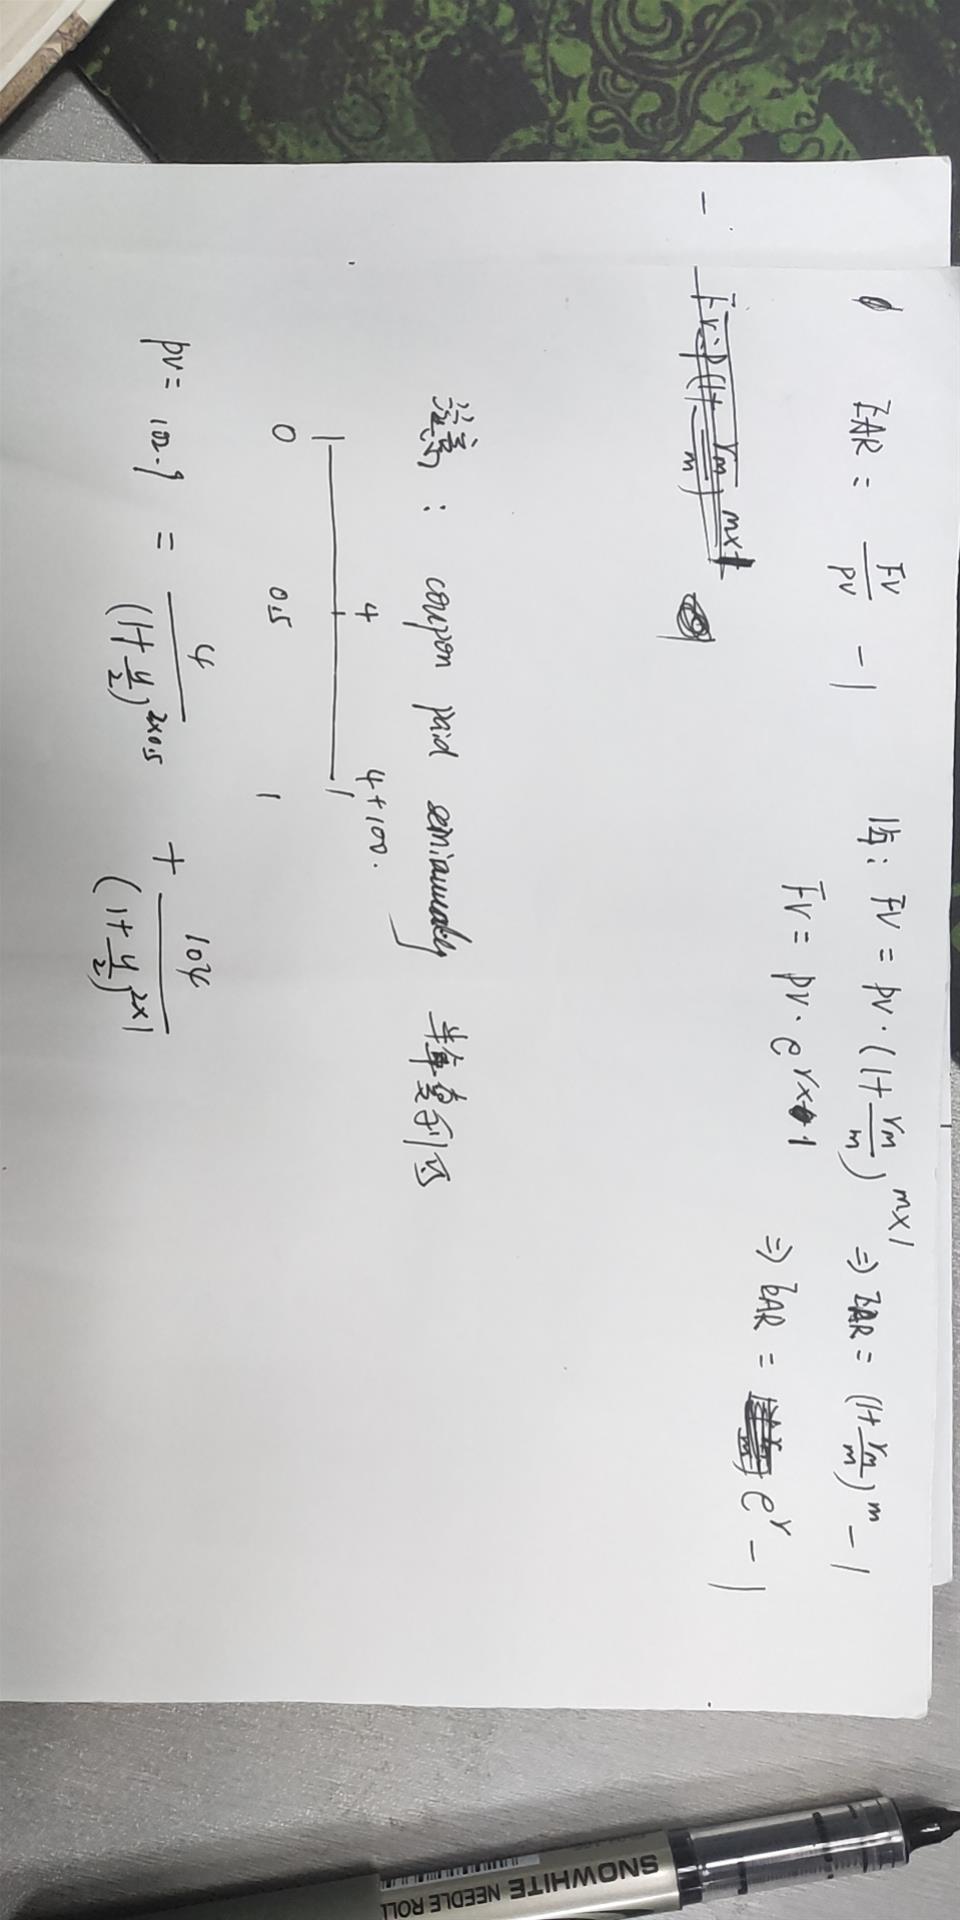 EAR = FV/PV - 1
1年: FV = PV·(1+rm/m)^m×1 => EAR = (1+rm/m)^m - 1
FV = PV·e^r×1 => EAR = e^r - 1
注意: coupon paid semiannually 半年复利
4 4+100.
0 0.5 1
PV = 102.9 = 4/(1+y/2)^2×0.5 + 104/(1+y/2)^2×1
SNOWHITE NEEDLE ROLL